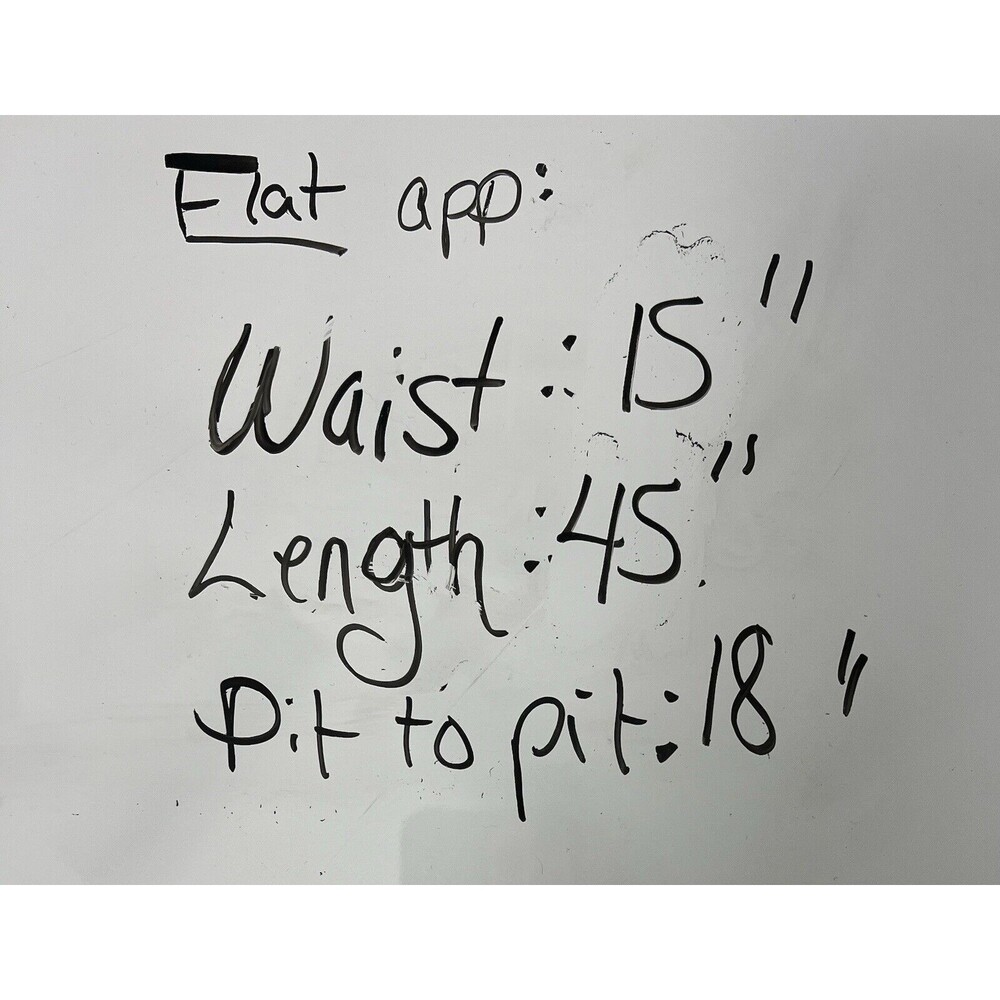 Flat app:
Waist: 15"
Length: 45"
Pit to pit: 18"